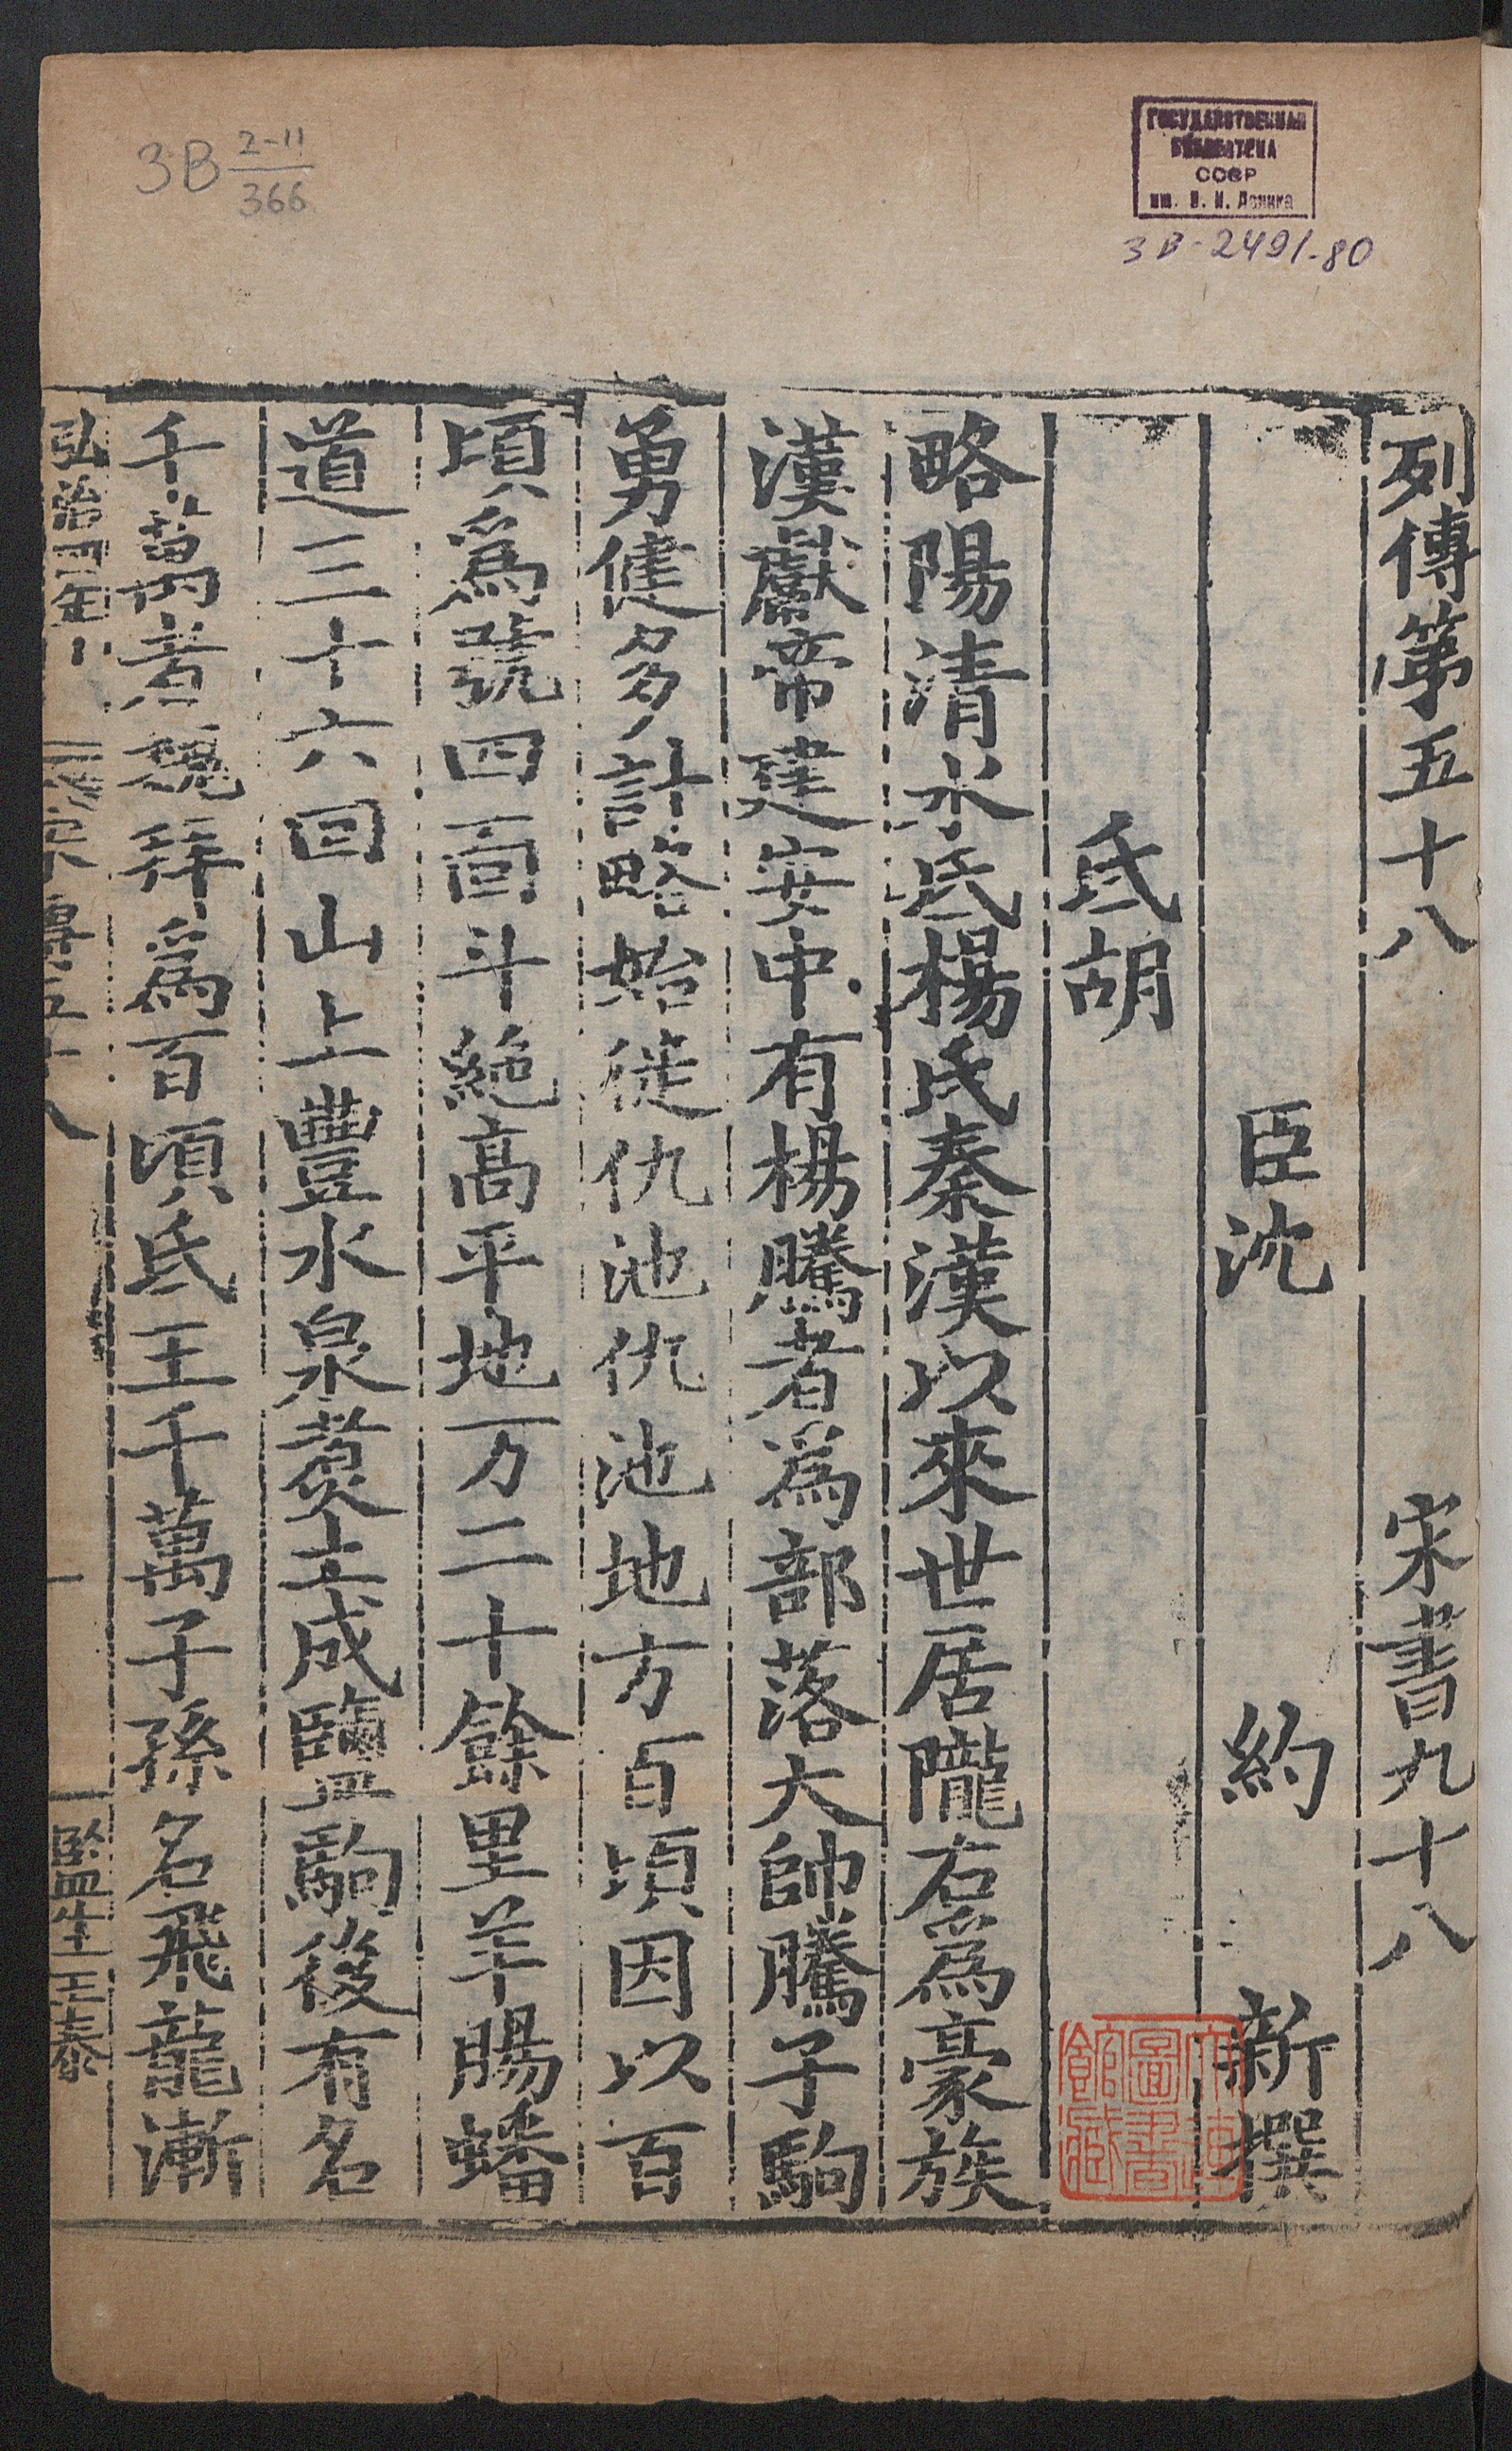 3В 2-11
366
ГОСУДАРСТВЕННАЯ
БИБЛИОТЕКА
СССР
им. В. И. Ленина
3В-2491-80
列傳第五十八 宋書九十八
臣沈 約 新撰
氐胡
略陽清水氐楊氏秦漢以來世居隴右爲豪族
漢獻帝建安中有楊騰者爲部落大帥騰子駒
勇健多計略始徙仇池仇池地方百頃因以百
頃爲號四面斗絶高平地方二十餘里羊腸蟠
道三十六回山上豐水泉煑土成鹽駒後有名
千萬者魏拜爲百頃氐王千萬子孫名飛龍漸
弘治四年 傳五十八 一 監生王泰
大連圖書館藏